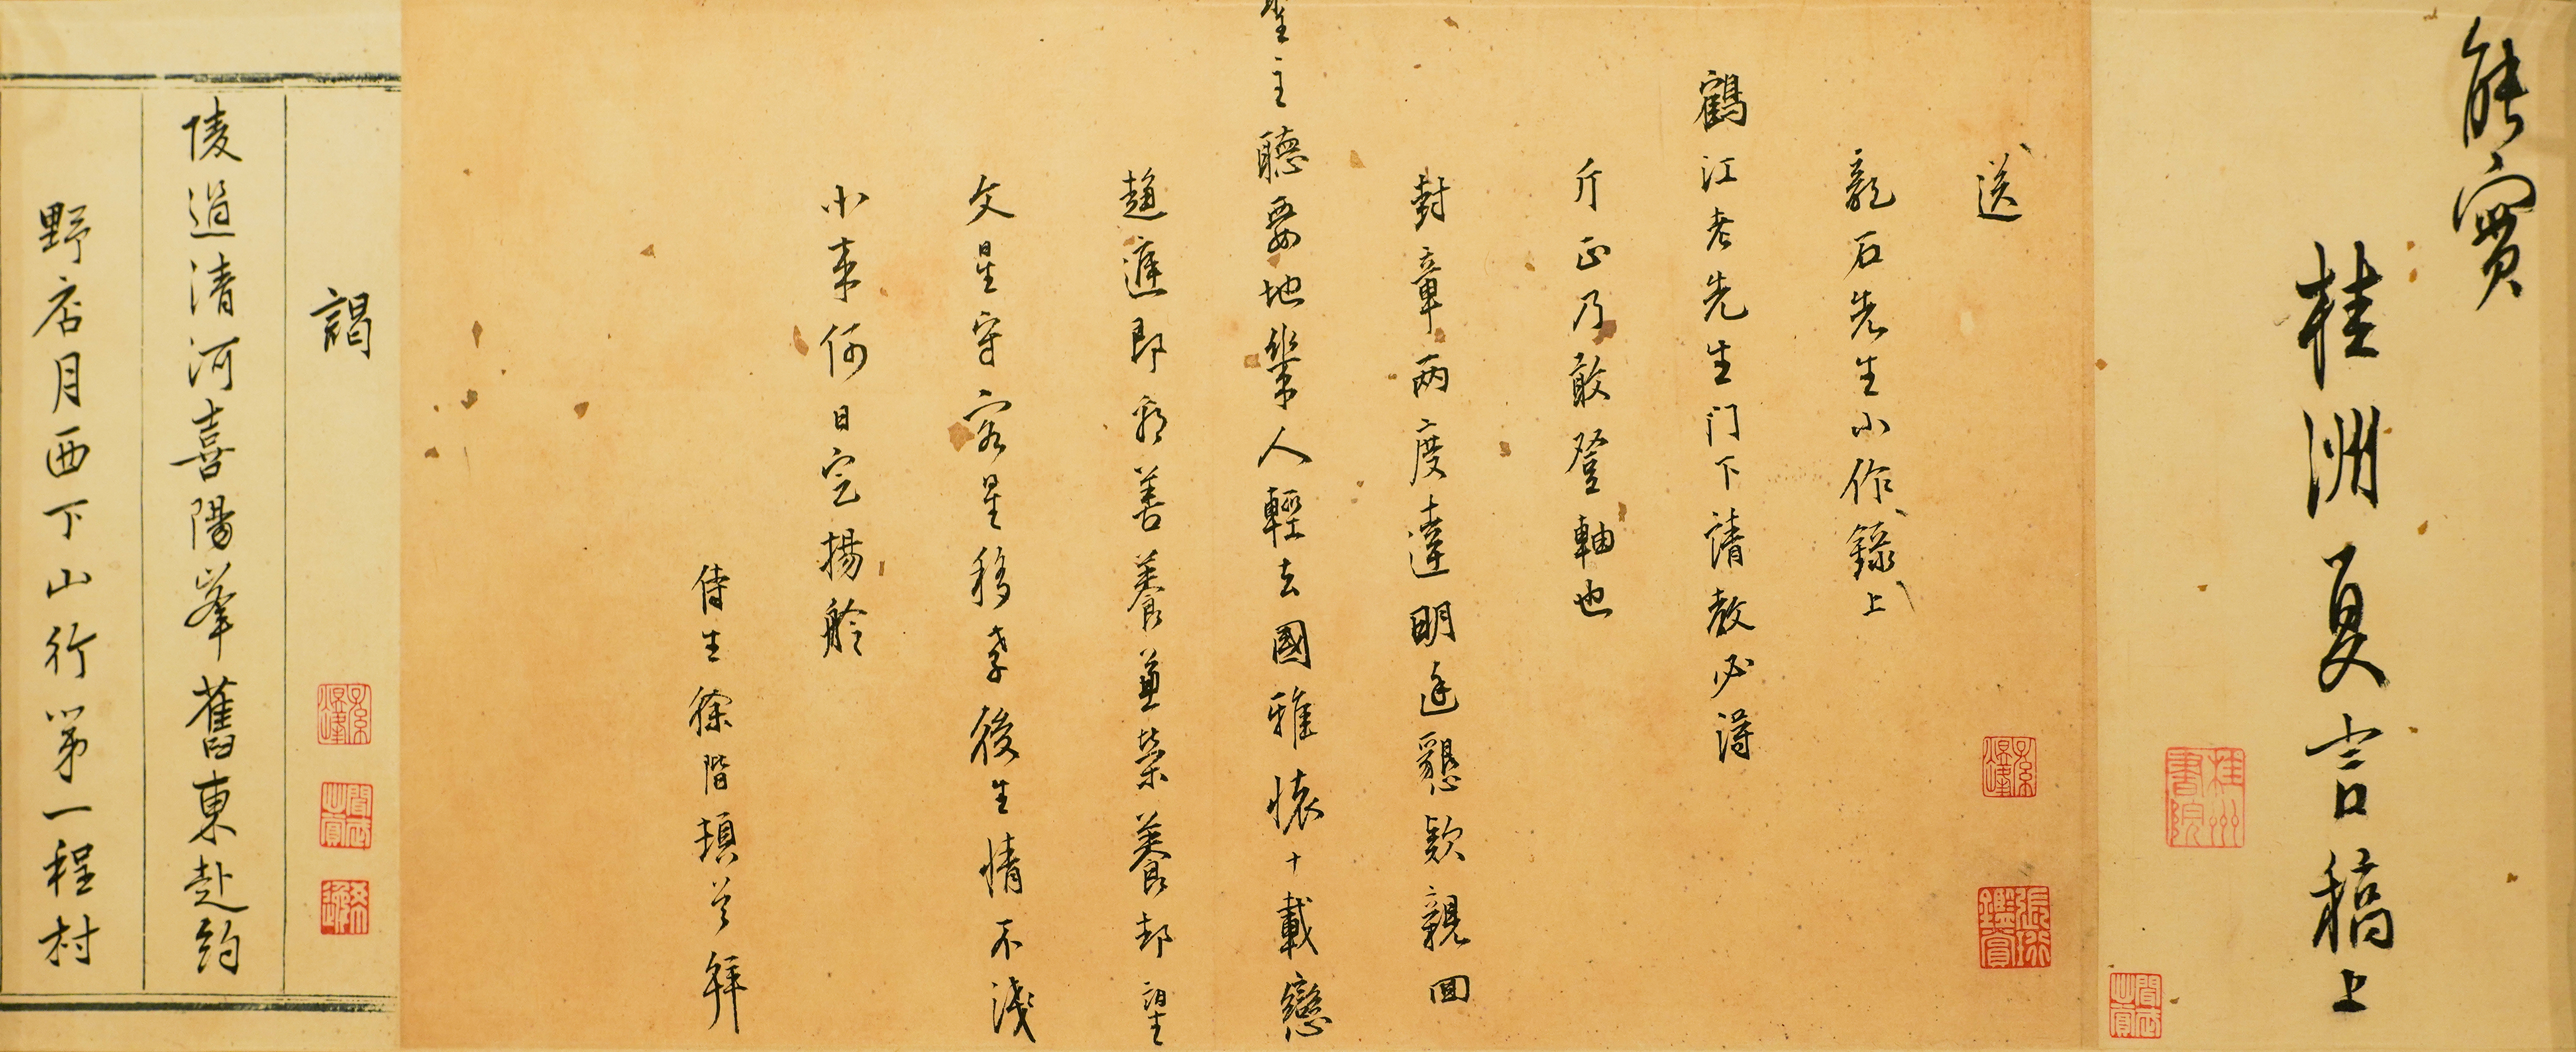 能實
桂洲夏言稿上
送
龍石先生小作錄上
鶴江老先生门下請教必得
斤正乃敢登軸也
封章兩度達明廷懇款親回
聖主聽要地幾人輕去國雅懷十載戀
趨庭即承善養兼榮養却望
文星守客星移孝後生情不淺
小來何日定揚舲
侍生徐階頓首拜
謁
陵過清河喜陽峯舊東赴約
野店月西下山行第一程村